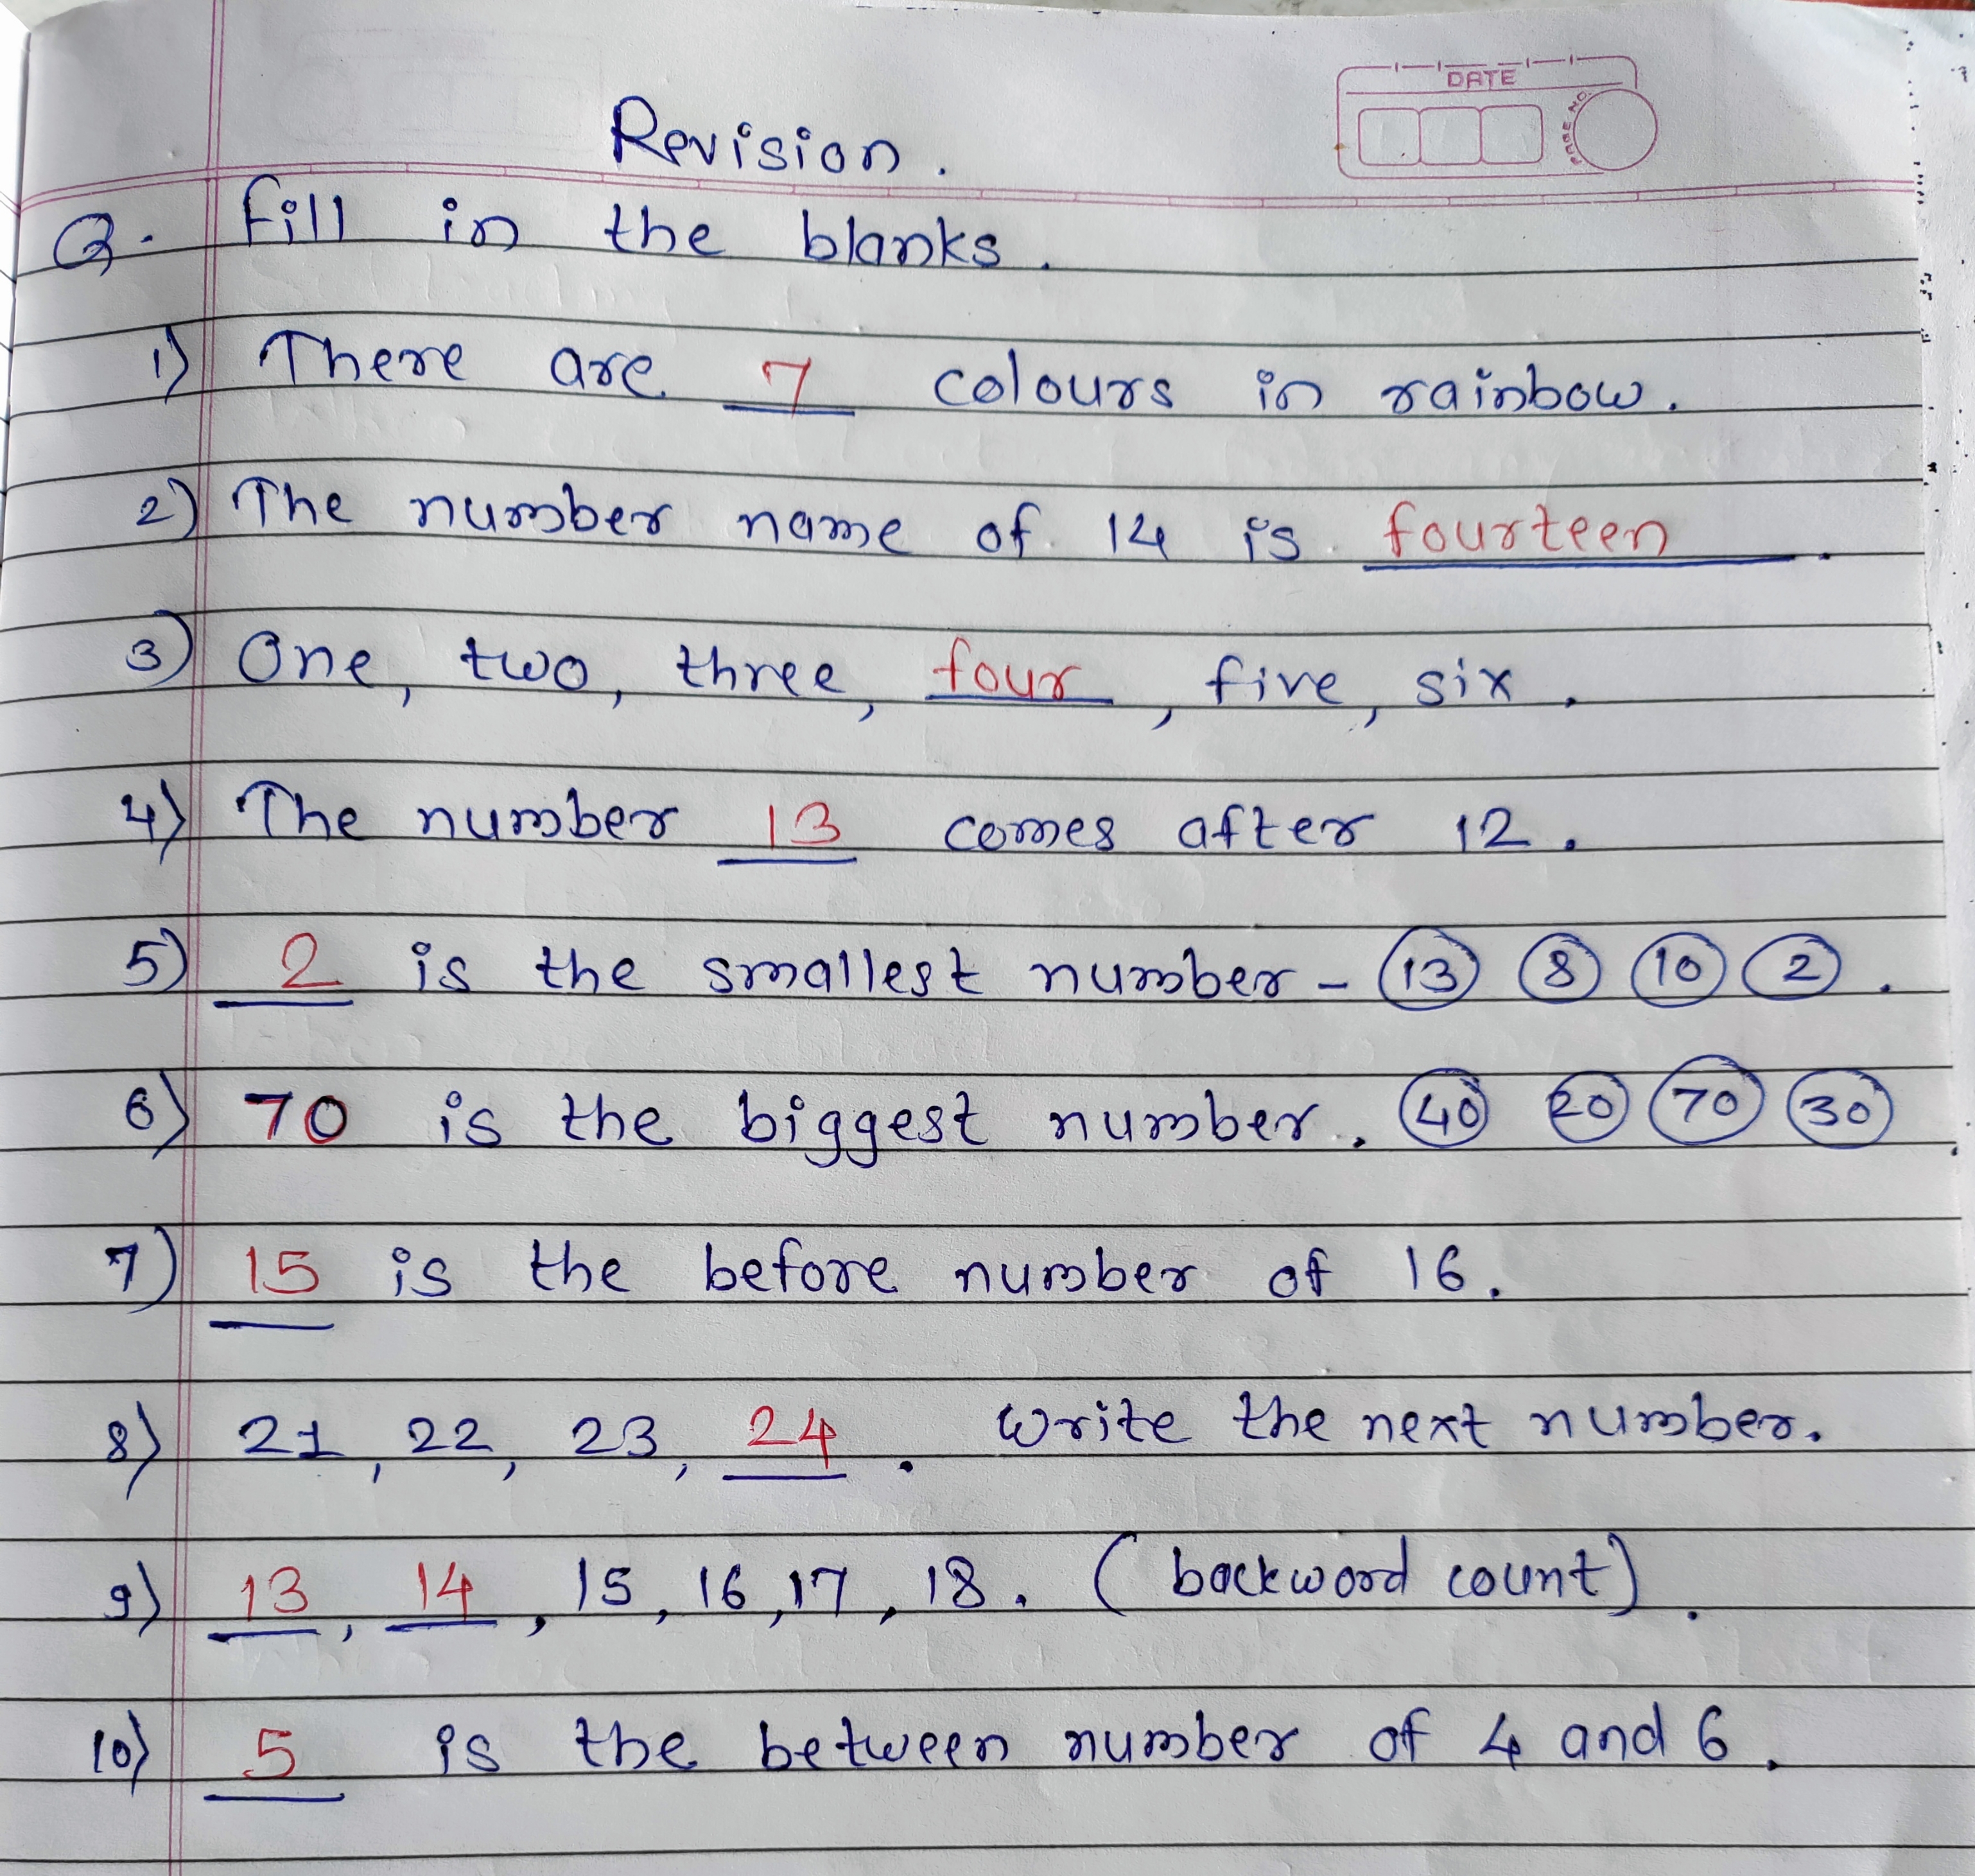 DATE
PAGE NO.
Revision.
Q. Fill in the blanks.
1) There are 7 colours in rainbow.
2) The number name of 14 is fourteen.
3) One, two, three, four, five, six.
4) The number 13 comes after 12.
5) 2 is the smallest number - 13 8 10 2.
6) 70 is the biggest number. 40 20 70 30.
7) 15 is the before number of 16.
8) 21, 22, 23, 24. Write the next number.
9) 13, 14, 15, 16, 17, 18. (backword count).
10) 5 is the between number of 4 and 6.